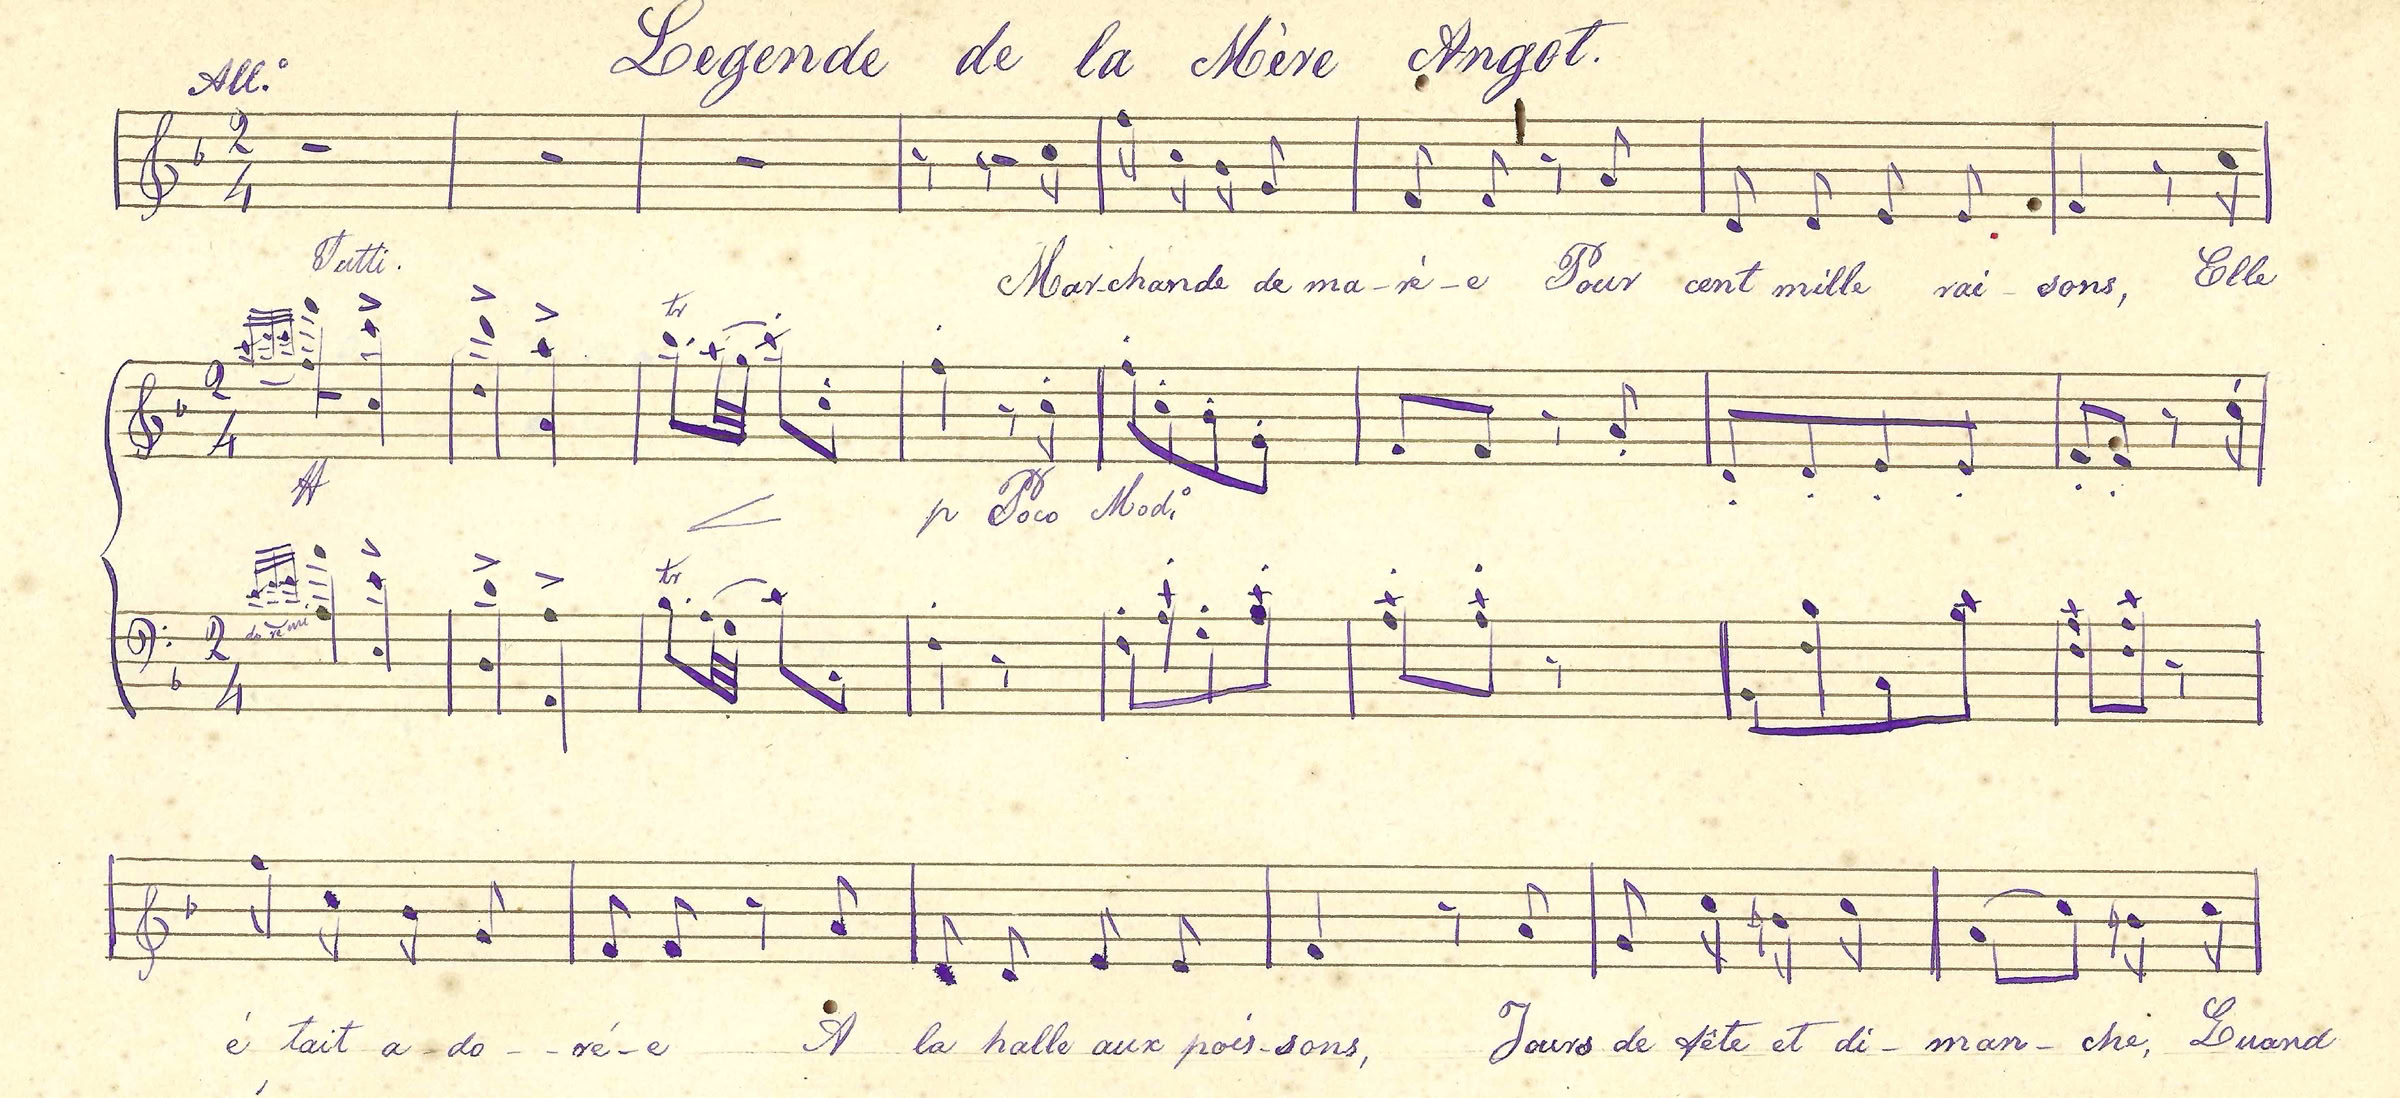 Legende de la Mère Angot.
All.º
2 4
Tutti.
Marchande de ma-ré-e Pour cent mille rai-sons, Elle
tr
2 4
ff p Poco Mod.º
tr
do ré mi
2 4
é tait a-do--ré-e A la halle aux pois-sons, Jours de fête et di-man-che, Quand